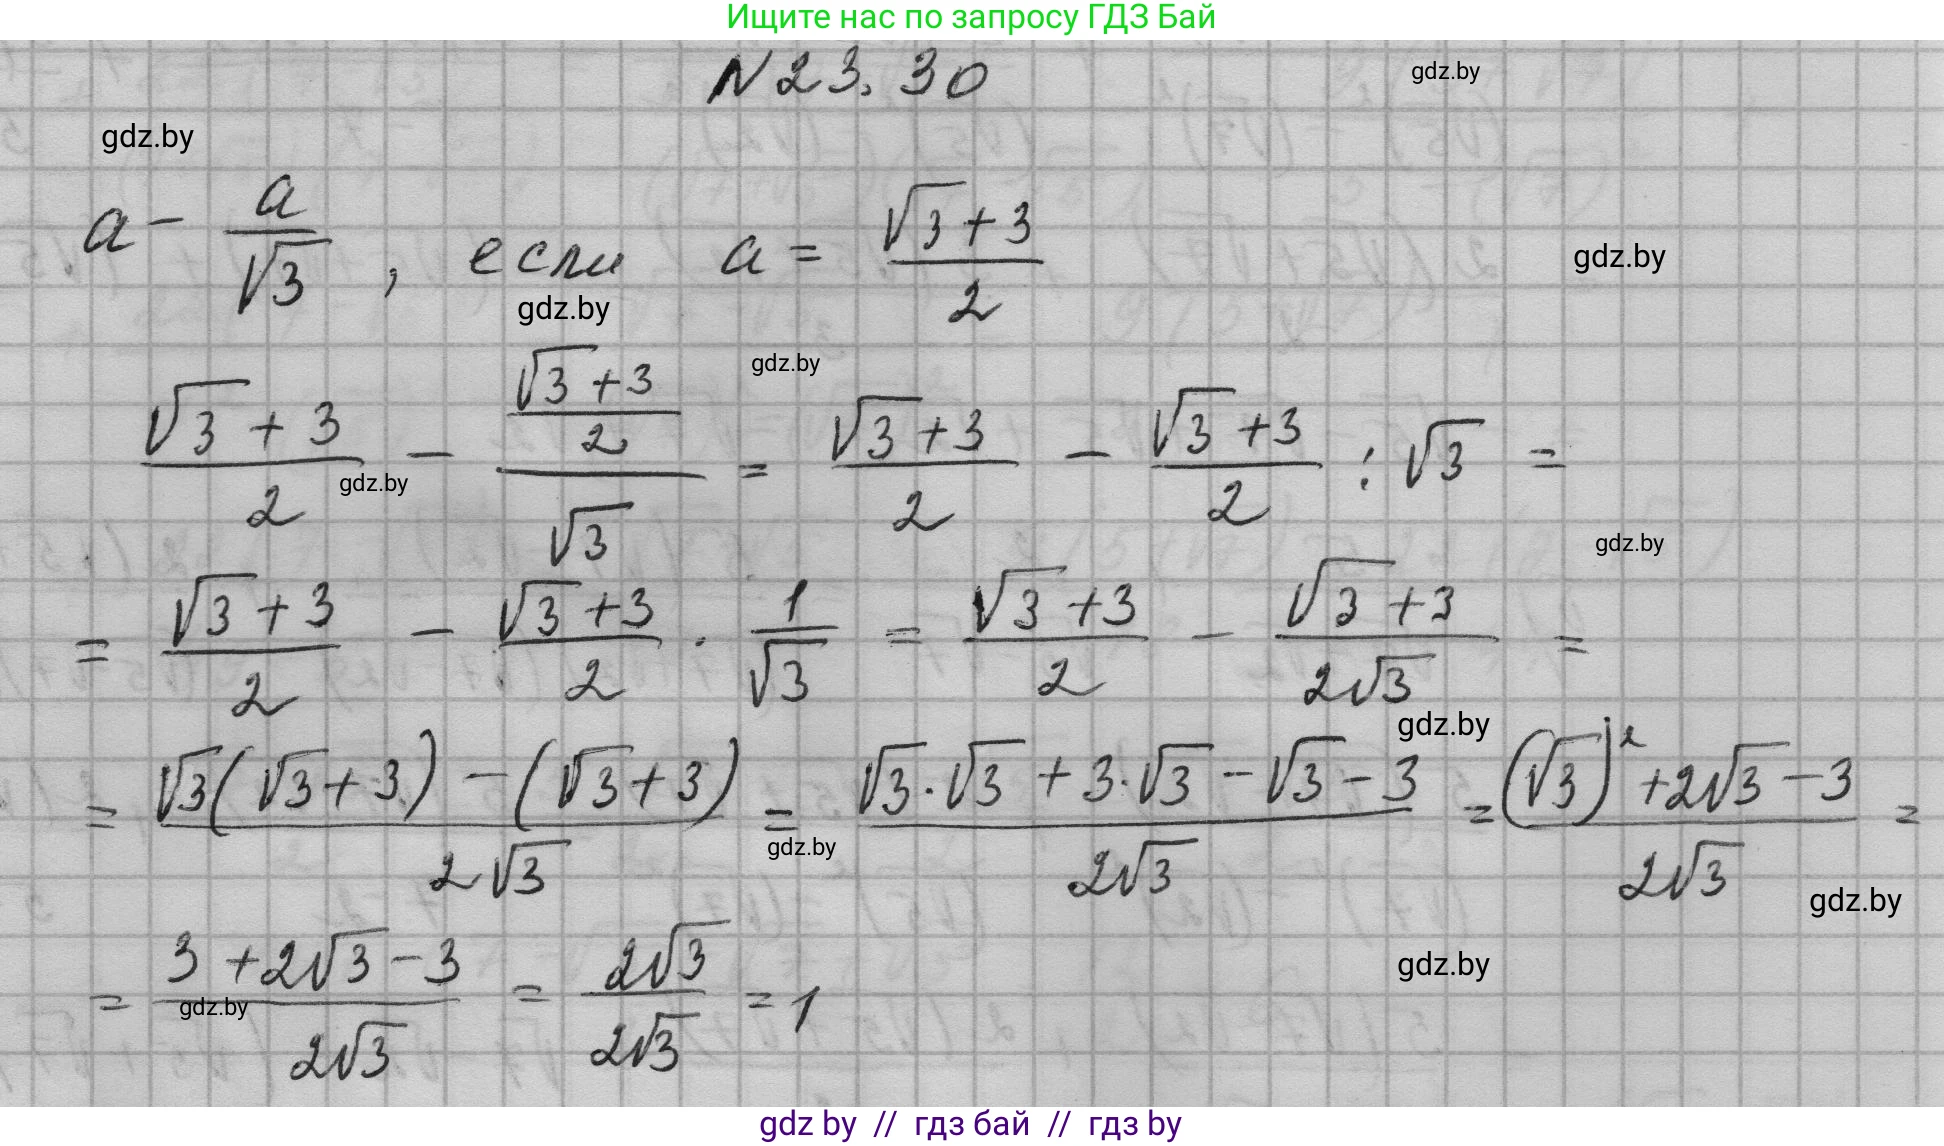 Ищите нас по запросу ГДЗ Бай
N 23.30
gdz.by
gdz.by
a - a/√3, если a = (√3 + 3)/2
gdz.by
gdz.by
gdz.by
(√3 + 3)/2 - ((√3 + 3)/2)/√3 = (√3 + 3)/2 - (√3 + 3)/2 : √3 =
gdz.by
gdz.by
= (√3 + 3)/2 - (√3 + 3)/2 · 1/√3 = (√3 + 3)/2 - (√3 + 3)/(2√3) =
gdz.by
= (√3(√3 + 3) - (√3 + 3))/(2√3) = (√3 · √3 + 3 · √3 - √3 - 3)/(2√3) = ((√3)² + 2√3 - 3)/(2√3) =
gdz.by
gdz.by
gdz.by
= (3 + 2√3 - 3)/(2√3) = 2√3/(2√3) = 1
gdz.by
gdz by // гдз бай // гдз by